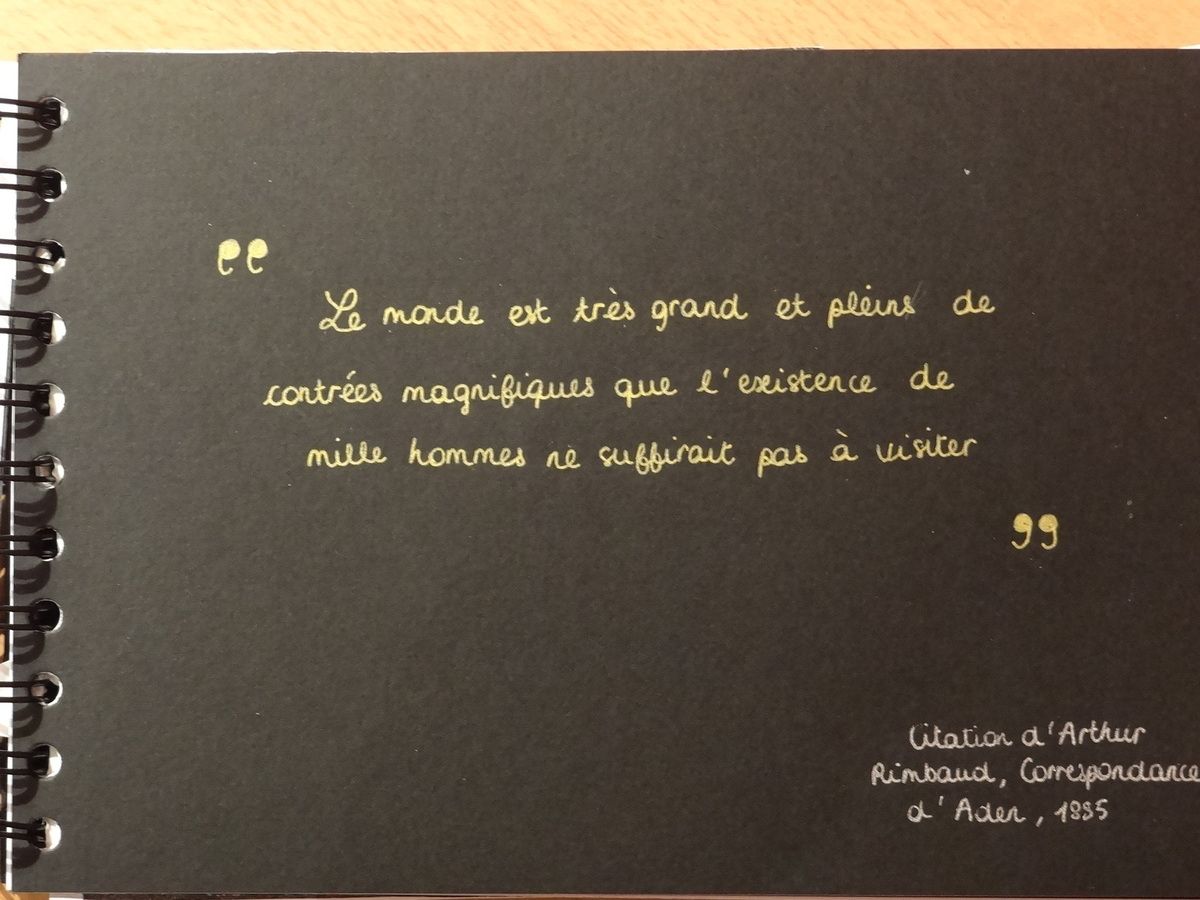 “
Le monde est très grand et pleins de
contrées magnifiques que l'existence de
mille hommes ne suffirait pas à visiter
”
Citation d'Arthur
Rimbaud, Correspondance
d'Aden, 1885